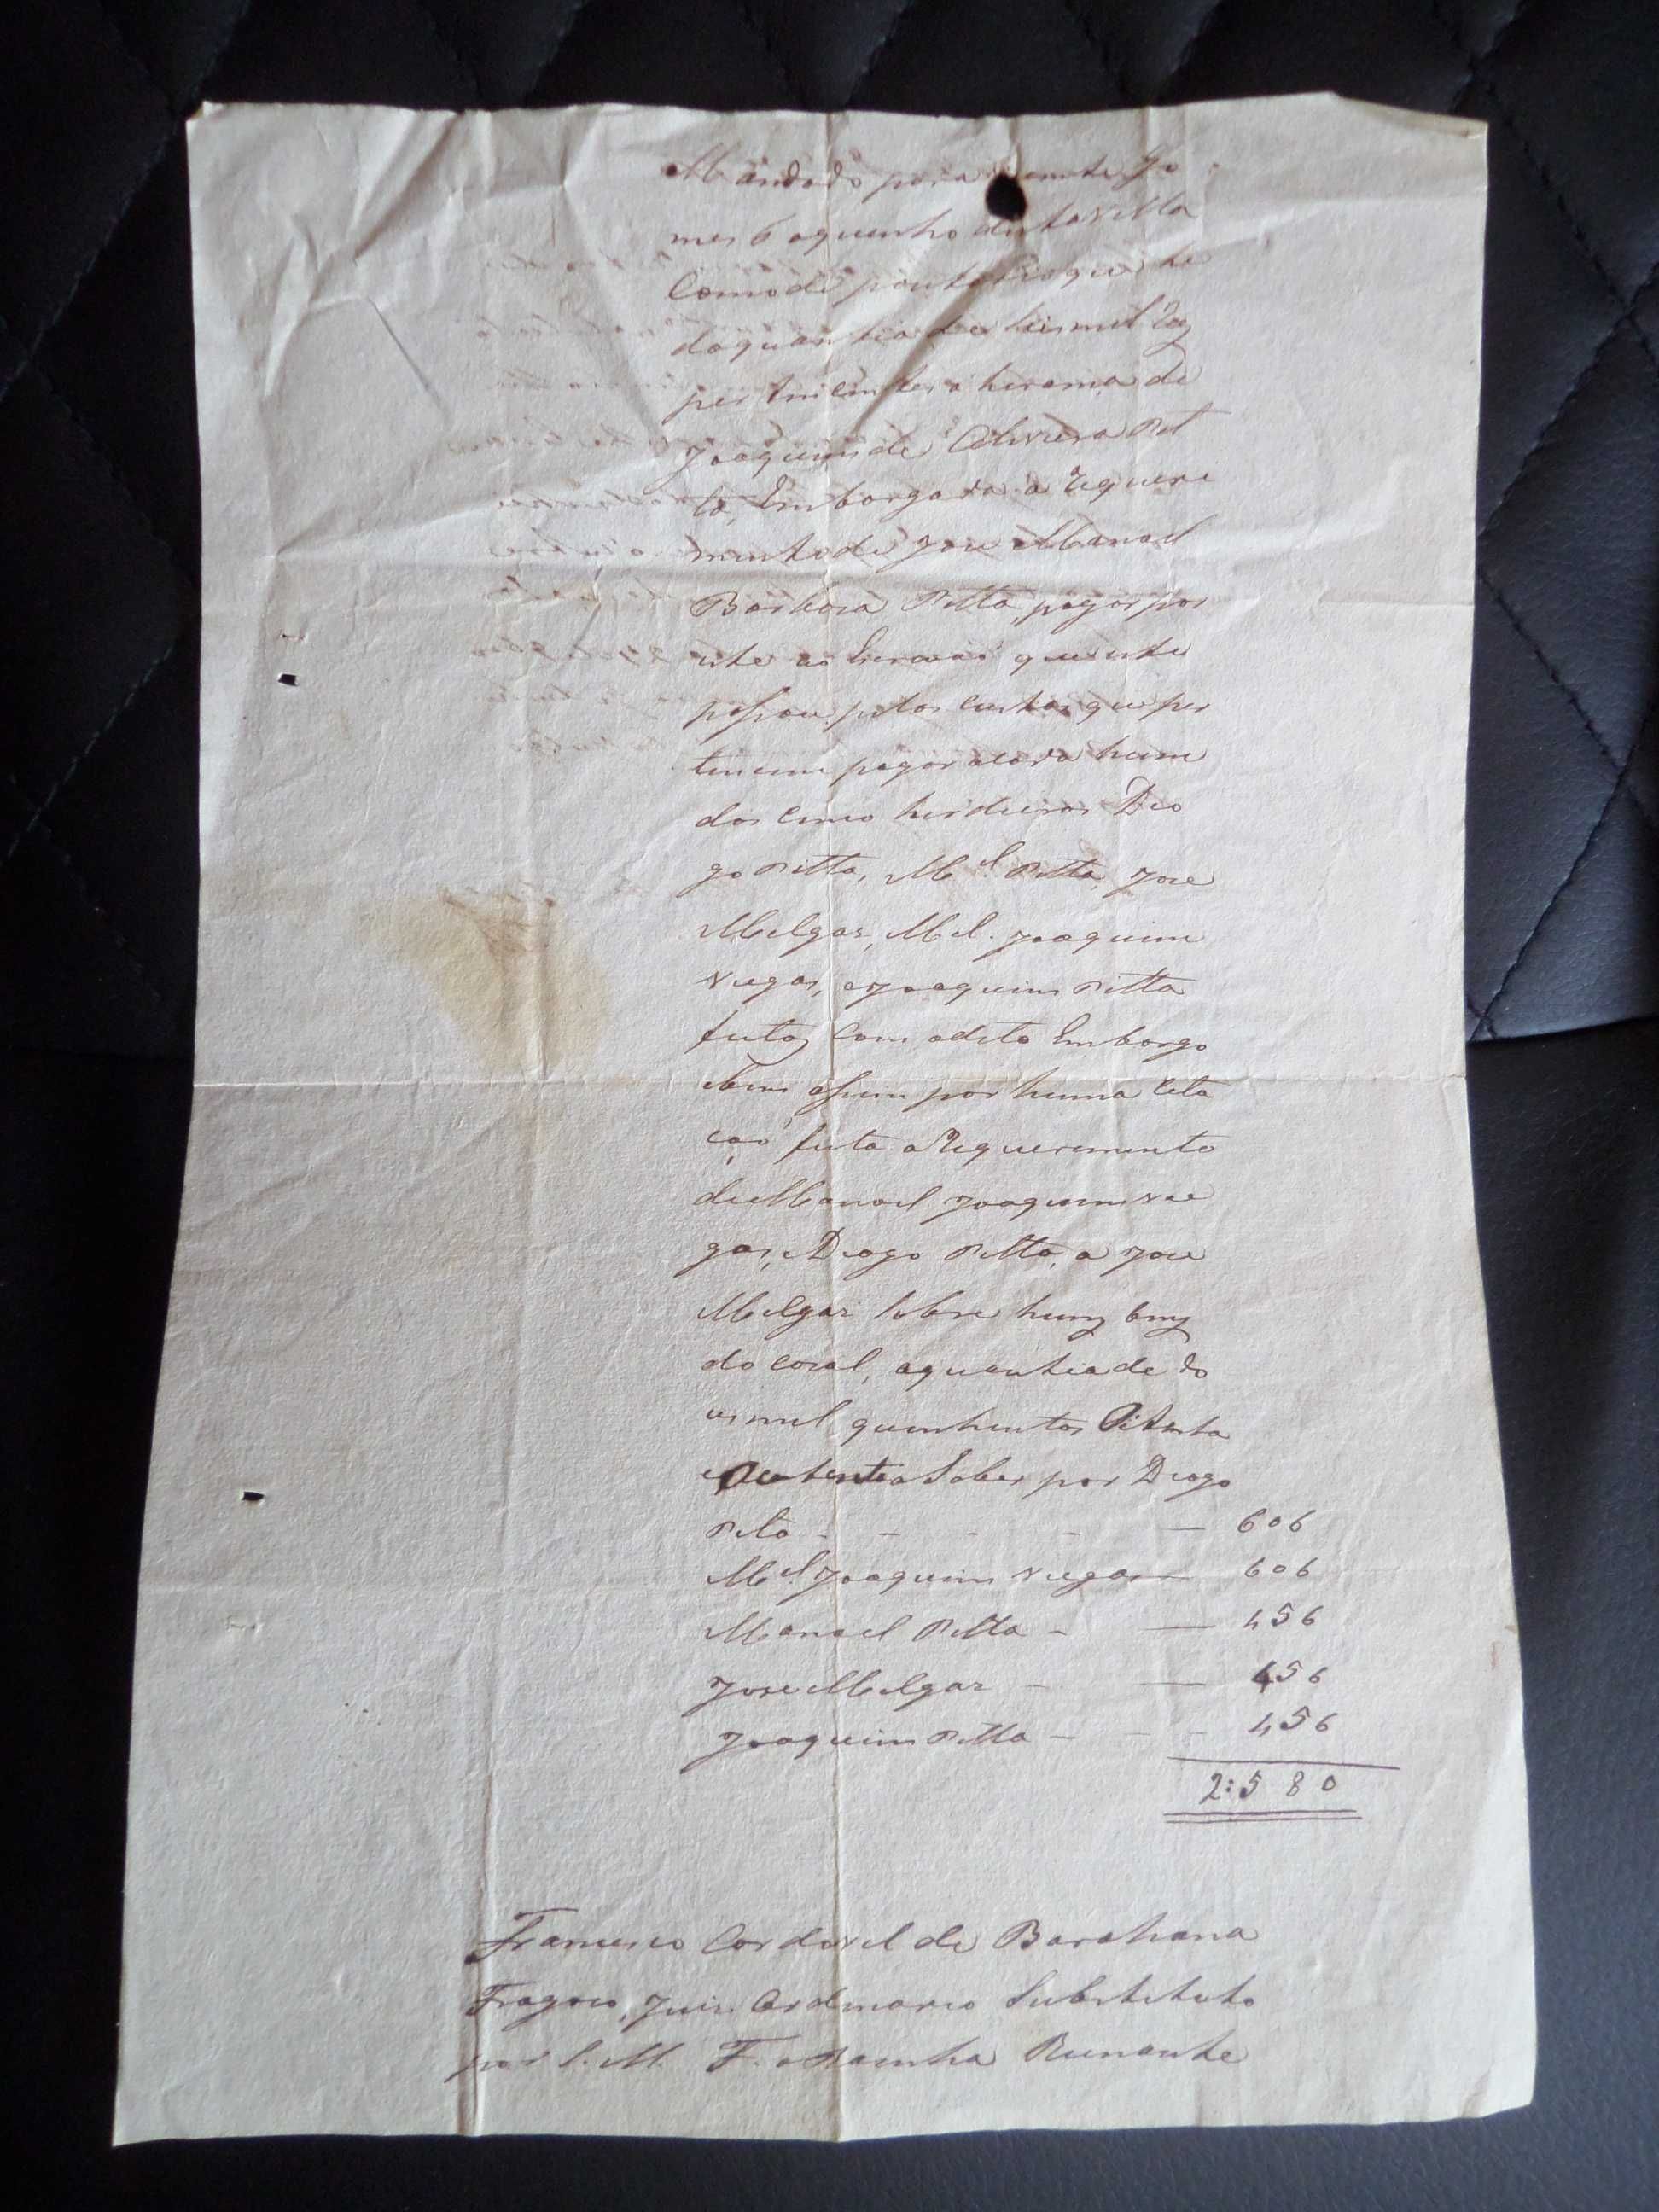 Mandado para Vicente Go
mes Baquinho desta Villa
Como depozitario que he
daquantia de Seis mil Reis
pertencentes a heransa de
Joaquim de Oliveira Pit
ta, Embargada a Requeri
mento de Jose Manoel
Barboza Pitta, pagar por
este ao Escrivaõ que este
passou pelas custas que per
tencem pagar acada hum
dos cinco herdeiros Dio
go Pitta, M.el Pitta, Jose
Melgas, M.el Joaquim
Viegas, e Joaquim Pitta
feitas com adito Embargo
ebem assim por huma Cita
çaõ feita a Requerimento
de Manoel Joaquim Vie
gas, e Diogo Pitta, a Jose
Melgas sobre huns bens
do Cazal, aquantia de do
is mil quinhentos Oitenta
a Saber por Diogo
Pita - - - - - 606
M.el Joaquim Viegas — 606
Manoel Pitta - — 456
Jose Melgas - — 456
Joaquim Pitta - - - 456
2:580
Francisco Cordovil de Barahona
Fragozo, Juis Ordinario Substituto
por S. M. F. a Rainha Reinante